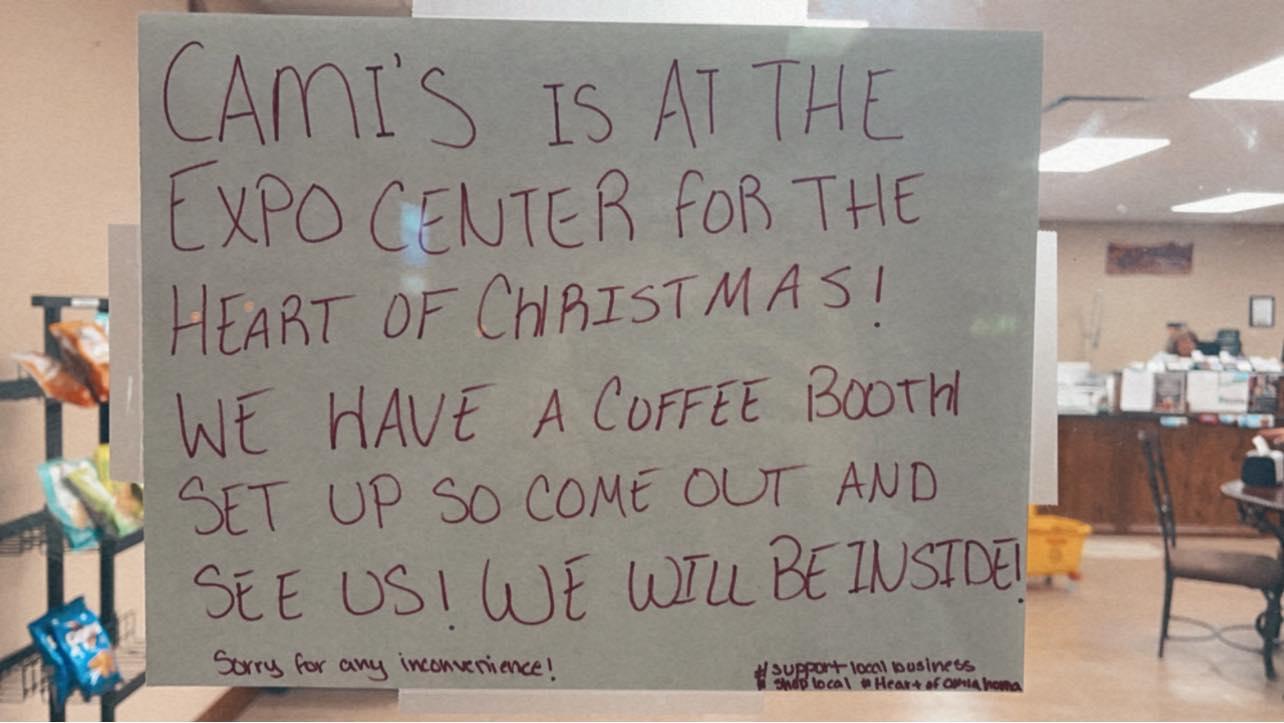 CAMI'S IS AT THE
EXPO CENTER FOR THE
HEART OF CHRISTMAS!
WE HAVE A COFFEE BOOTH
SET UP SO COME OUT AND
SEE US! WE WILL BE INSIDE!
Sorry for any inconvenience!
#support local business
# shop local #Heart of